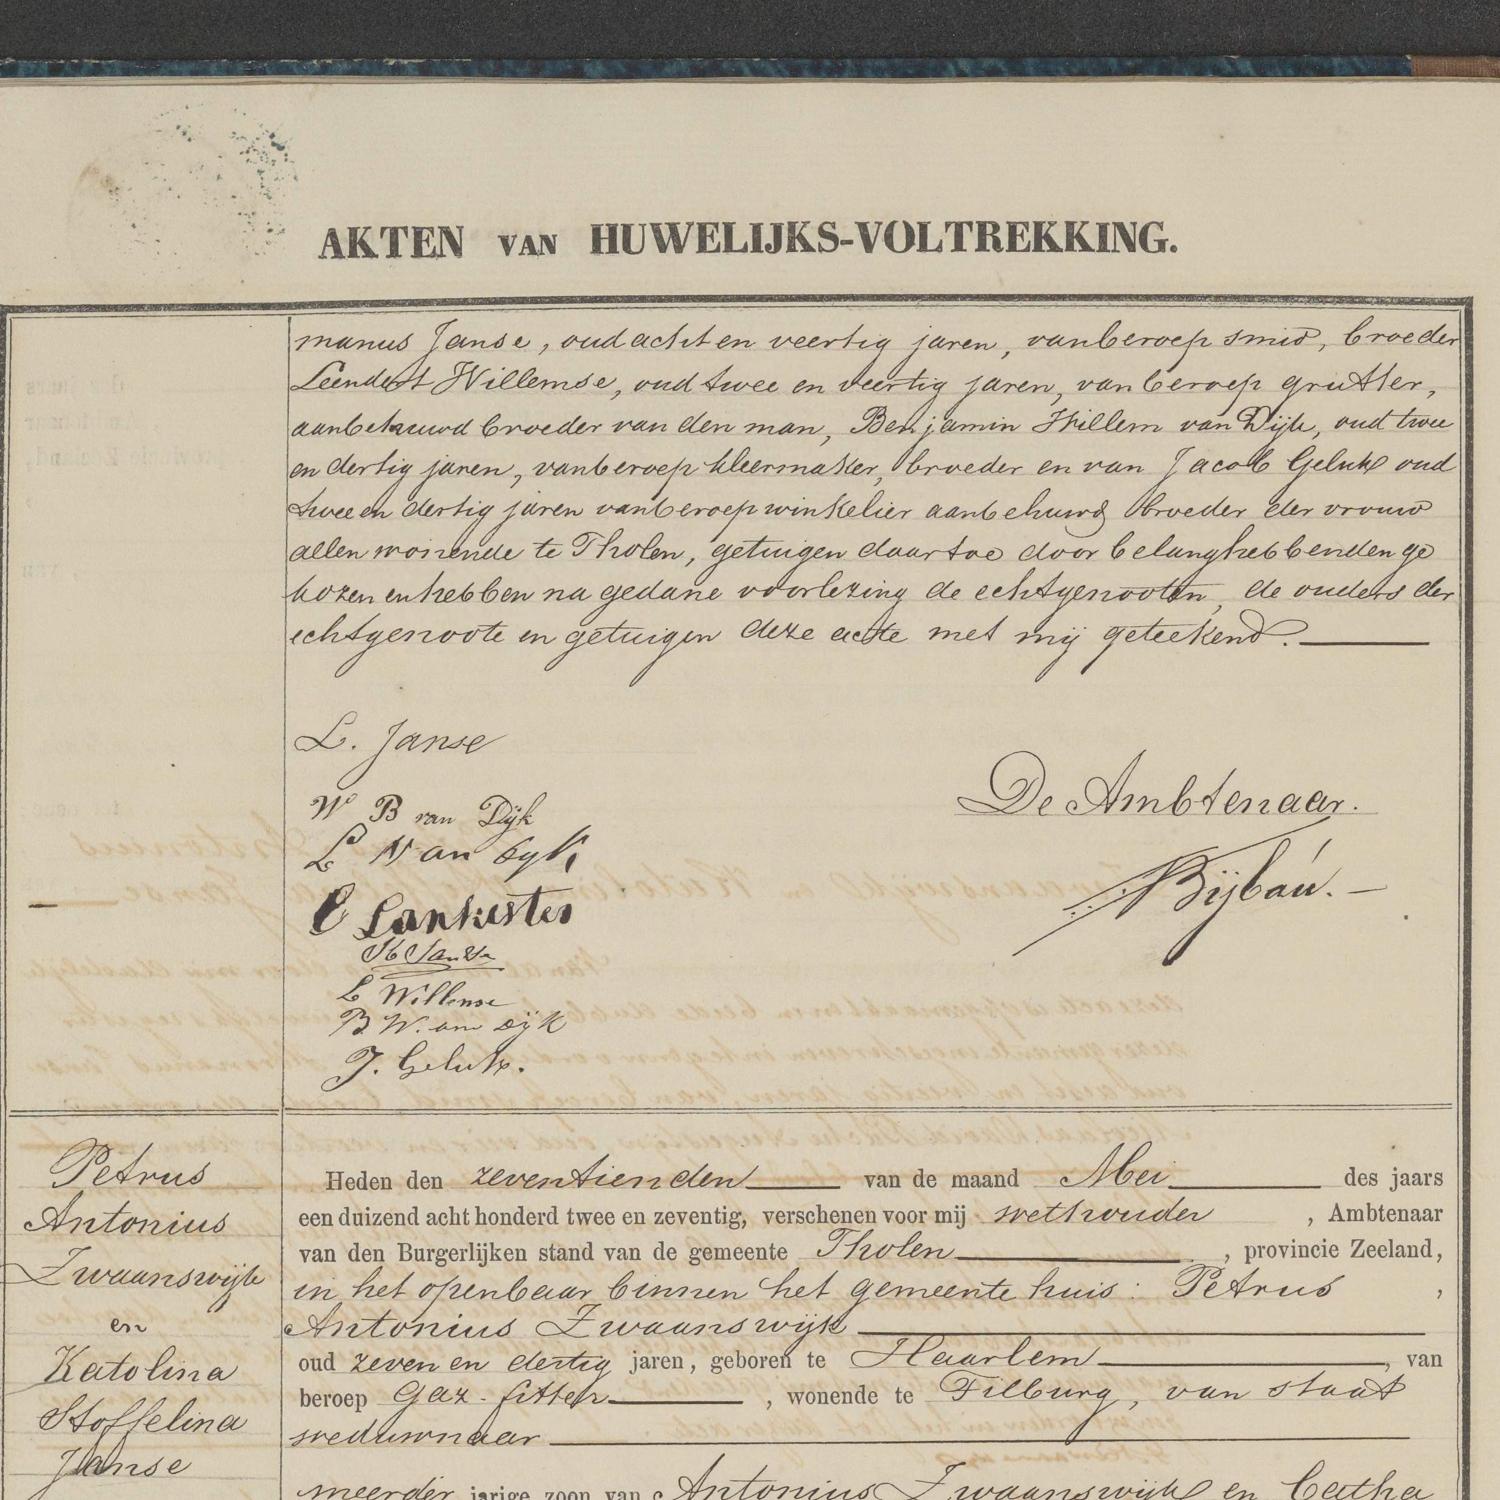 AKTEN VAN HUWELIJKS-VOLTREKKING.
manus Janse, oud acht en veertig jaren, van beroep smid, broeder
Leendert Willemse, oud twee en veertig jaren, van beroep grutter,
aanbehuwd broeder van den man, Benjamin Willem van Dijk, oud twee
en dertig jaren, van beroep kleermaker, broeder en van Jacob Geluk oud
twee en dertig jaren van beroep winkelier aanbehuwd broeder der vrouw
allen wonende te Tholen, getuigen daartoe door belanghebbenden ge
kozen en hebben na gedane voorlezing de echtgenooten, de ouders der
echtgenoote en getuigen deze acte met mij geteekend.
L. Janse
W B van Dijk
L van Dyk
De Ambtenaar.
C Lankester
Bijbaú.
H Janse
L Willemse
B. W. van Dijk
J. Geluk.
Petrus
Antonius
Zwaanswijk
en
Katolina
Stoffelina
Janse
Heden den zeventienden van de maand Mei des jaars
een duizend acht honderd twee en zeventig, verschenen voor mij wethouder, Ambtenaar
van den Burgerlijken stand van de gemeente Tholen, provincie Zeeland,
in het openbaar binnen het gemeente huis: Petrus,
Antonius Zwaanswijk
oud zeven en dertig jaren, geboren te Haarlem, van
beroep Gaz-fitter, wonende te Tilburg, van staat
weduwnaar
meerderjarige zoon van Antonius Zwaanswijk en Catha